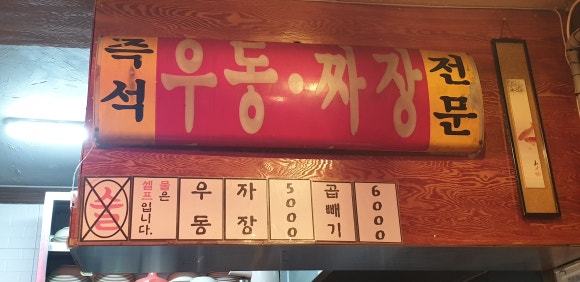 즉석
우동·짜장
전문
술
물은
셀프입니다.
우동
자장
5000
곱빼기
6000